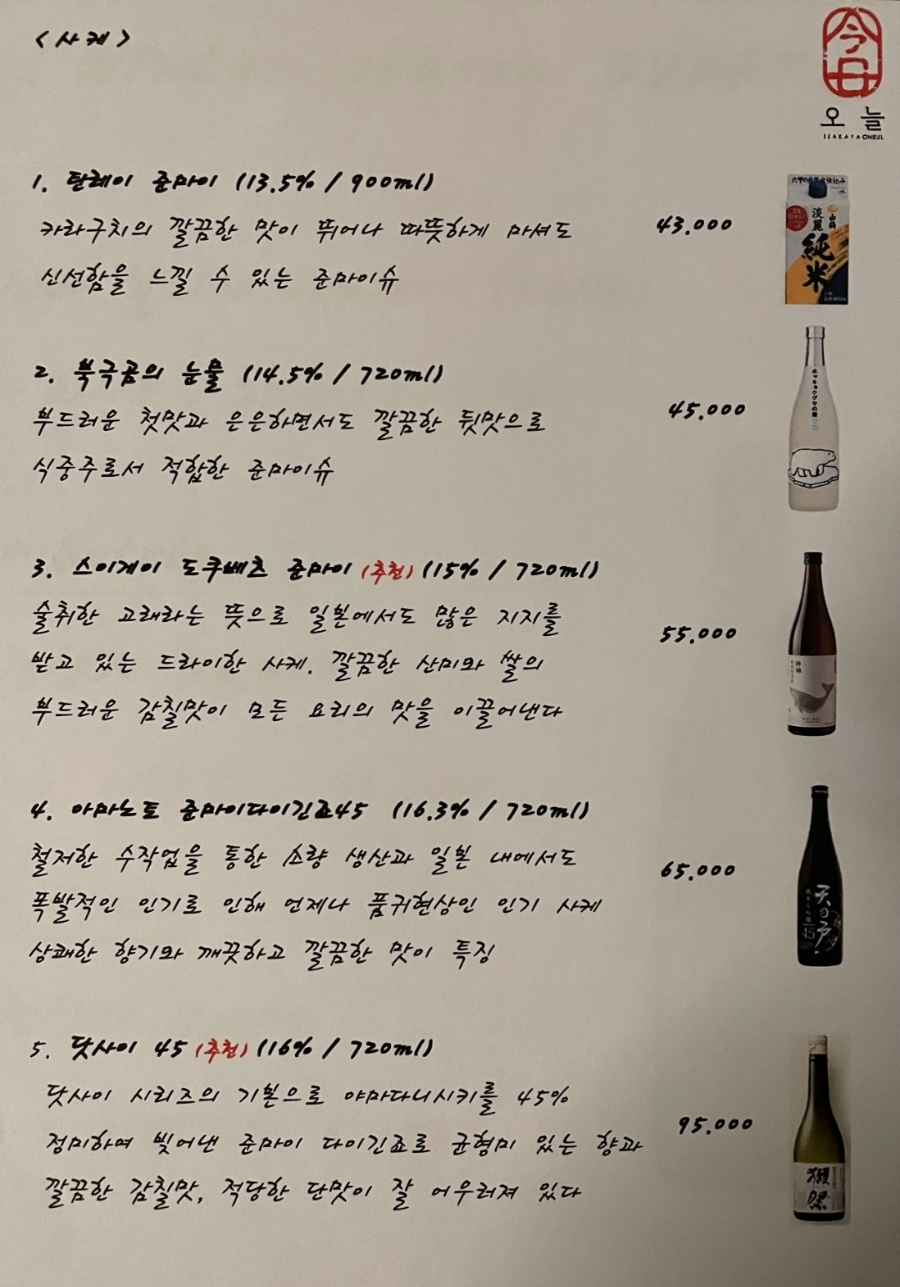 <사케>
今日
오늘
IZAKAYA ONEUL
1. 탄레이 준마이 (13.5% / 900ml)
카라구치의 깔끔한 맛이 뛰어나 따뜻하게 마셔도
신선함을 느낄 수 있는 준마이슈
43.000
白鶴
淡麗
純米
2. 북극곰의 눈물 (14.5% / 720ml)
부드러운 첫맛과 은은하면서도 깔끔한 뒷맛으로
식중주로서 적합한 준마이슈
45.000
3. 스이게이 도쿠베츠 준마이 (추천) (15% / 720ml)
술취한 고래라는 뜻으로 일본에서도 많은 지지를
받고 있는 드라이한 사케. 깔끔한 산미와 쌀의
부드러운 감칠맛이 모든 요리의 맛을 이끌어낸다
55.000
4. 아마노토 준마이다이긴죠45 (16.3% / 720ml)
철저한 수작업을 통한 소량 생산과 일본 내에서도
폭발적인 인기로 인해 언제나 품귀현상인 인기 사케
상쾌한 향기와 깨끗하고 깔끔한 맛이 특징
65.000
天の戸
45
5. 닷사이 45 (추천) (16% / 720ml)
닷사이 시리즈의 기본으로 야마다니시키를 45%
정미하여 빚어낸 준마이 다이긴죠로 균형미 있는 향과
깔끔한 감칠맛, 적당한 단맛이 잘 어우러져 있다
95.000
獺祭